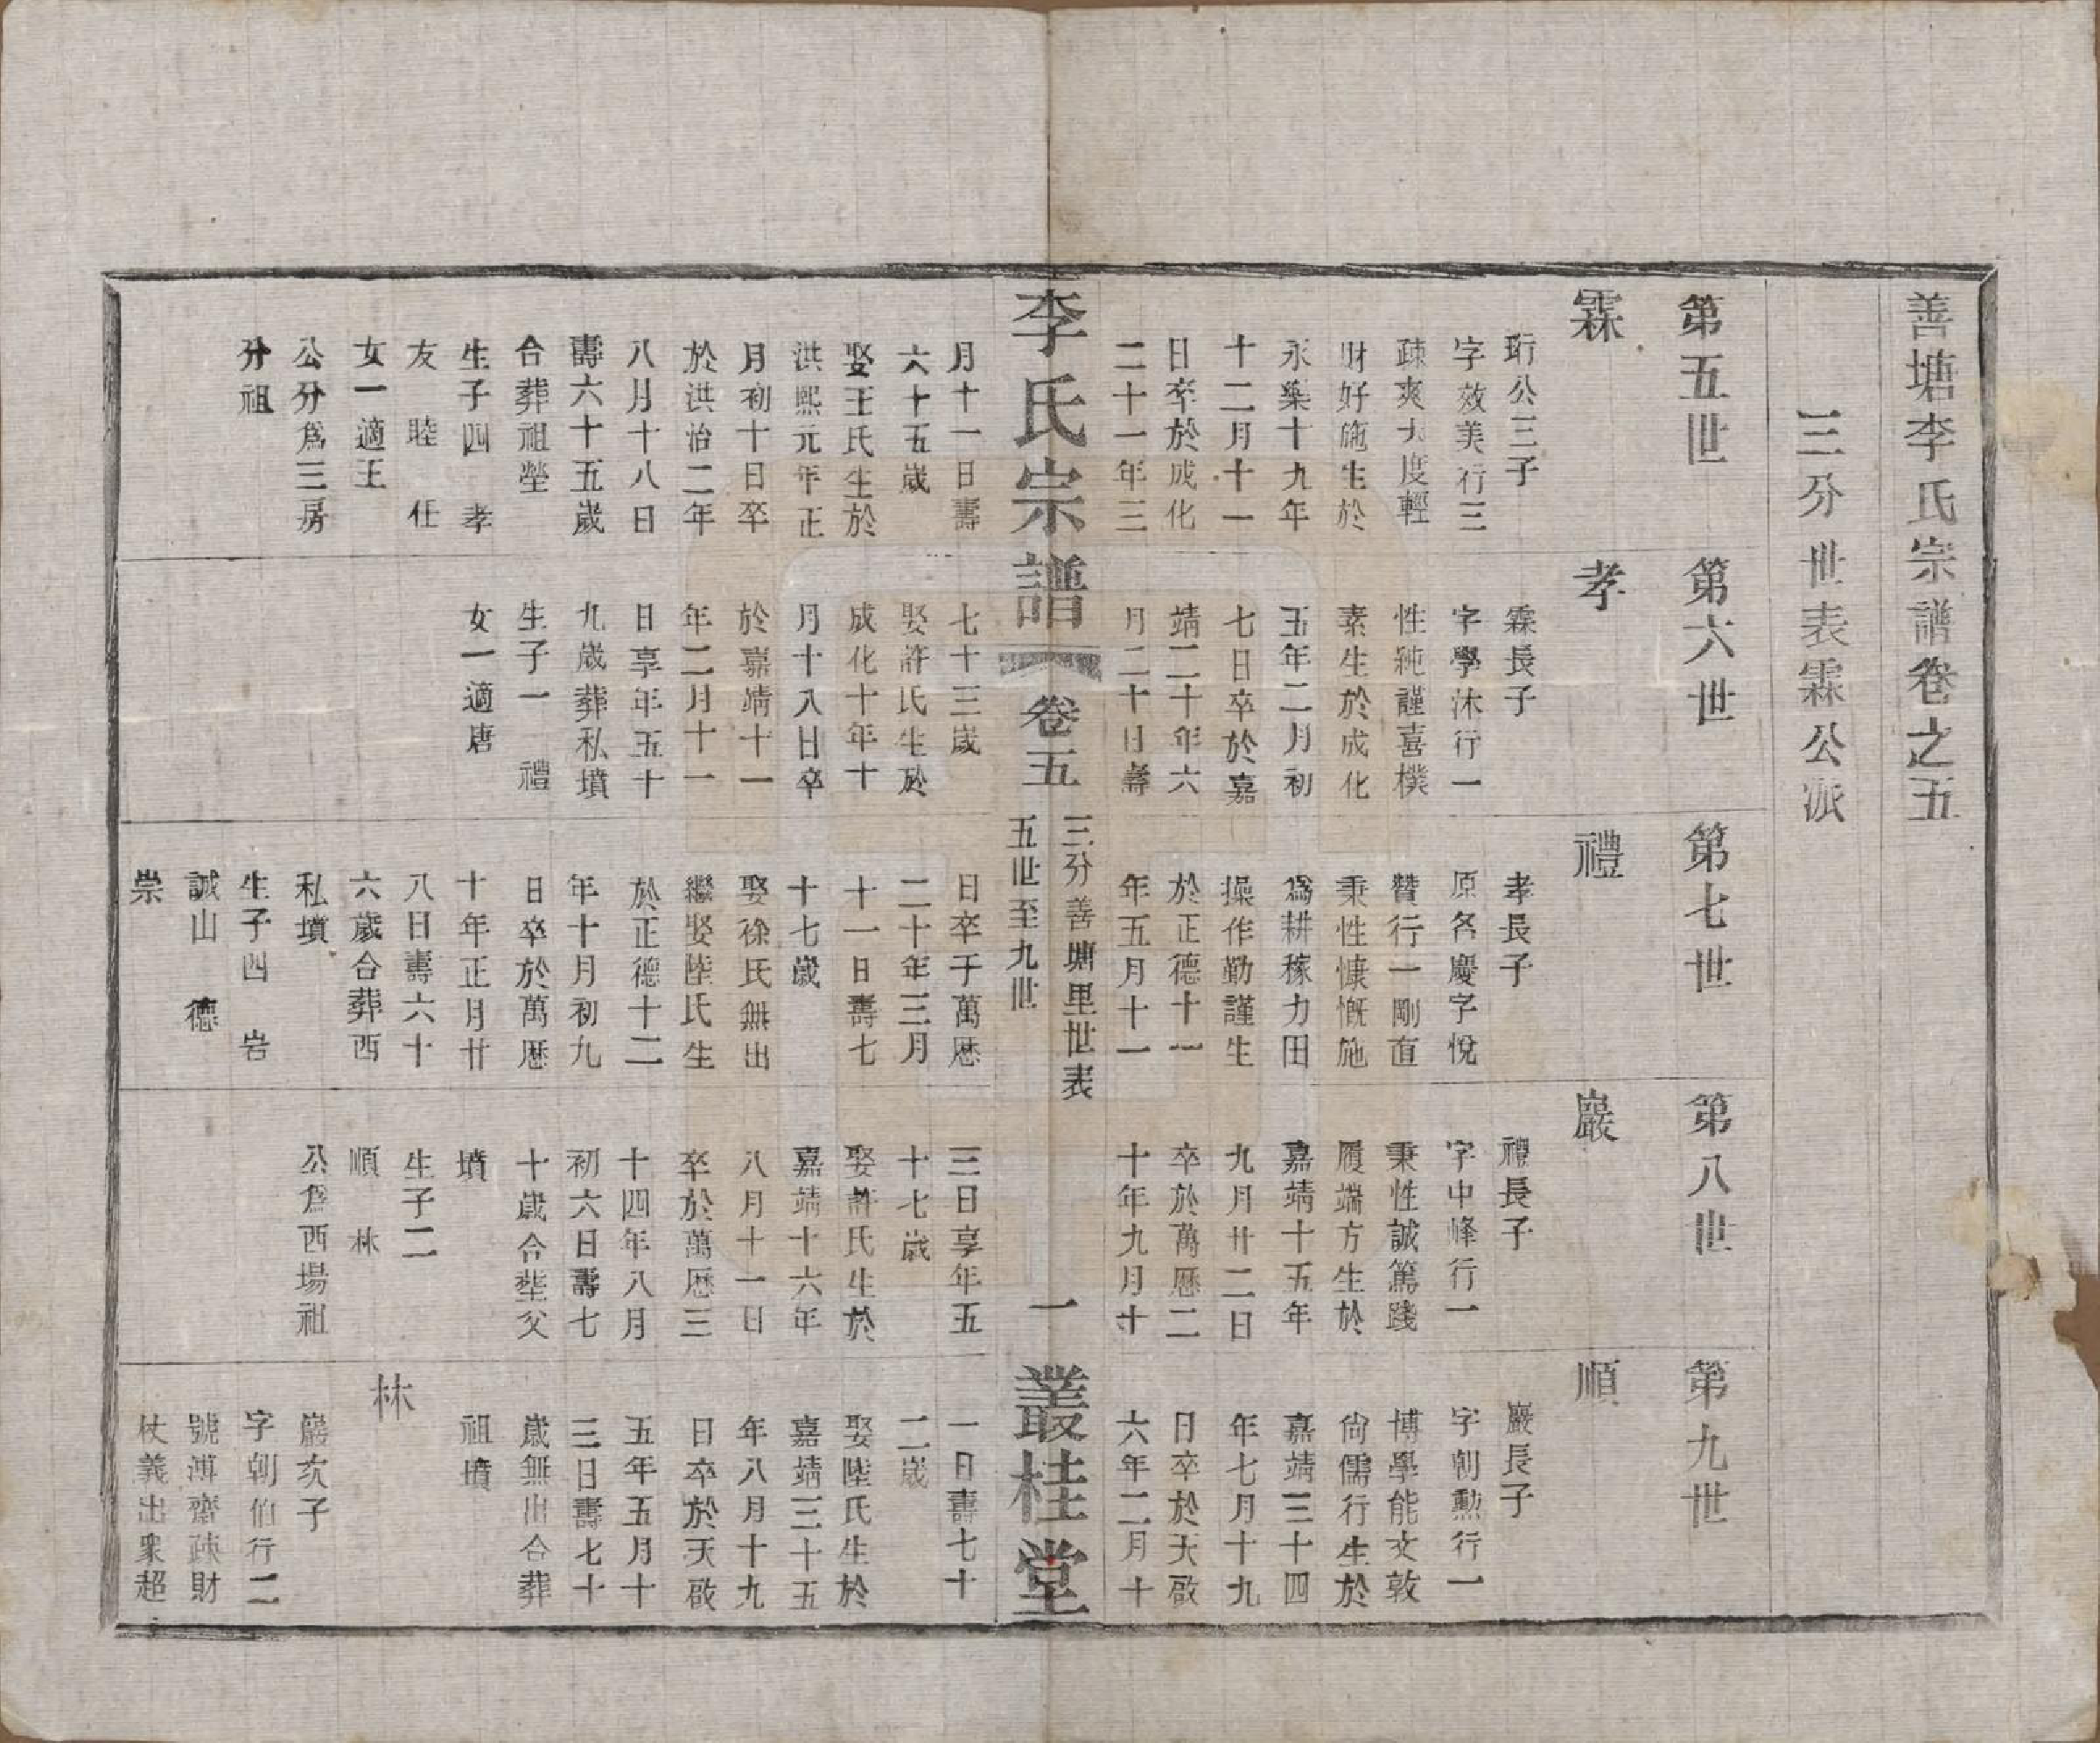 善塘李氏宗譜卷之五
三分世表霖公派
第五世
霖
珩公三子
字效美行三
疎爽大度輕
財好施生於
永樂十九年
十二月十一
日卒於成化
二十一年三
月十一日壽
六十五歲
娶王氏生於
洪熙元年正
月初十日卒
於洪治二年
八月十八日
壽六十五歲
合葬祖塋
生子四 孝
友 睦 任
女一適王
公分爲三房
分祖
第六世
孝
霖長子
字學沐行一
性純謹喜樸
素生於成化
五年二月初
七日卒於嘉
靖二十年六
月二十日壽
七十三歲
娶許氏生於
成化十年十
月十八日卒
於嘉靖十一
年二月十一
日享年五十
九歲葬私墳
生子一 禮
女一適唐
第七世
禮
孝長子
原名慶字悅
贊行一剛直
秉性慷慨施
爲耕稼力田
操作勤謹生
於正德十一
年五月十一
日卒于萬歷
二十年三月
十一日壽七
十七歲
娶徐氏無出
繼娶陸氏生
於正德十二
年十月初九
日卒於萬歷
十年正月廿
八日壽六十
六歲合葬西
私墳
生子四 岩
誠山 德
崇
第八世
巖
禮長子
字中峰行一
秉性誠篤踐
履端方生於
嘉靖十五年
九月廿二日
卒於萬歷二
十年九月十
三日享年五
十七歲
娶許氏生於
嘉靖十六年
八月十一日
卒於萬歷三
十四年八月
初六日壽七
十歲合塟父
墳
生子二
順 林
公爲西場祖
第九世
順
巖長子
字朝勲行一
博學能文敦
尙儒行生於
嘉靖三十四
年七月十九
日卒於天啟
六年二月十
一日壽七十
二歲
娶陸氏生於
嘉靖三十五
年八月十九
日卒於天啟
五年五月十
三日壽七十
歲無出合葬
祖墳
林
巖次子
字朝伯行二
號溥齋疎財
仗義出衆超
李氏宗譜
卷五
三分善塘里世表
五世至九世
一
叢桂堂